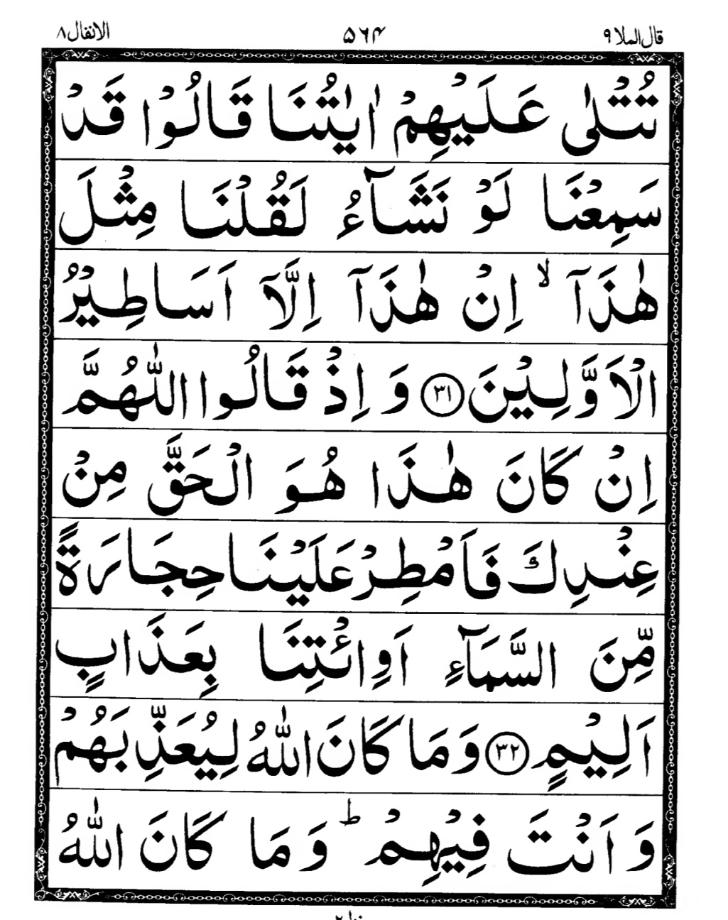 قال الملا ٩
۵۶۴
الانفال ٨
تُتْلٰى عَلَيْهِمْ اٰيٰتُنَا قَالُوْا قَدْ
سَمِعْنَا لَوْ نَشَآءُ لَقُلْنَا مِثْلَ
هٰذَآ ۙ اِنْ هٰذَآ اِلَّآ اَسَاطِيْرُ
الْاَوَّلِيْنَ ﴿٣١﴾ وَ اِذْ قَالُوا اللّٰهُمَّ
اِنْ كَانَ هٰذَا هُوَ الْحَقَّ مِنْ
عِنْدِكَ فَاَمْطِرْ عَلَيْنَا حِجَارَةً
مِّنَ السَّمَآءِ اَوِ ائْتِنَا بِعَذَابٍ
اَلِيْمٍ ﴿٣٢﴾ وَ مَا كَانَ اللّٰهُ لِيُعَذِّبَهُمْ
وَ اَنْتَ فِيْهِمْ ؕ وَ مَا كَانَ اللّٰهُ